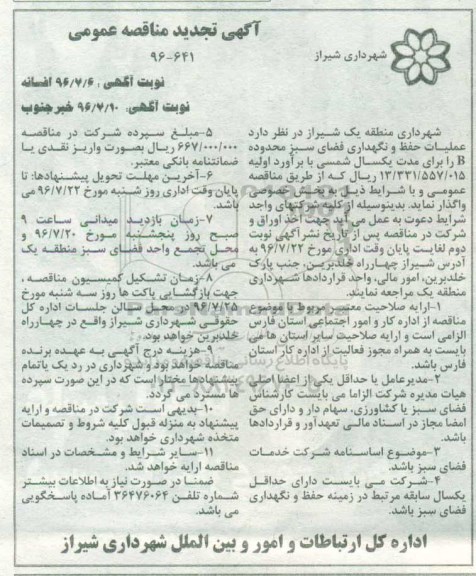 آگهی تجدید مناقصه عمومی
۹۶-۶۴۱
شهرداری شیراز
نوبت آگهی : ۹۶/۷/۶ افسانه
نوبت آگهی: ۹۶/۷/۱۰ خبرجنوب
شهرداری منطقه یک شیراز در نظر دارد
عملیات حفظ و نگهداری فضای سبز محدوده
B را برای مدت یکسال شمسی با برآورد اولیه
۱۳/۳۳۱/۵۵۷/۰۱۵ ریال که از طریق مناقصه
عمومی و با شرایط ذیل به بخش خصوصی
واگذار نماید. بدینوسیله از کلیه شرکتهای واجد
شرایط دعوت به عمل می آید جهت اخذ اوراق و
شرکت در مناقصه پس از تاریخ نشرآگهی نوبت
دوم لغایت پایان وقت اداری مورخ ۹۶/۷/۲۲ به
آدرس شیراز چهارراه خلدبرین، جنب پارک
خلدبرین، امور مالی، واحد قراردادها شهرداری
منطقه یک مراجعه نمایند.
۱-ارایه صلاحیت معتبر مربوط با موضوع
مناقصه از اداره کار و امور اجتماعی استان فارس
الزامی است و ارایه صلاحیت سایر استان ها می
بایست به همراه مجوز فعالیت از اداره کار استان
فارس باشد.
۲-مدیرعامل یا حداقل یکی از اعضا اصلی
هیات مدیره شرکت الزاما می بایست کارشناس
فضای سبز یا کشاورزی، سهام دار و دارای حق
امضا مجاز در اسناد مالی تعهدآور و قراردادها
باشد.
۳-موضوع اساسنامه شرکت خدمات
فضای سبز باشد.
۴-شرکت می بایست دارای حداقل
یکسال سابقه مرتبط در زمینه حفظ و نگهداری
فضای سبز باشد.
۵-مبلغ سپرده شرکت در مناقصه
۶۶۷/۰۰۰/۰۰۰ ریال بصورت واریز نقدی یا
ضمانتنامه بانکی معتبر.
۶-آخرین مهلت تحویل پیشنهادها: تا
پایان وقت اداری روز شنبه مورخ ۹۶/۷/۲۲ می
باشد.
۷-زمان بازدید میدانی ساعت ۹
صبح روز پنجشنبه مورخ ۹۶/۷/۲۰ و
محل تجمع واحد فضای سبز منطقه یک
می باشد.
۸-زمان تشکیل کمیسیون مناقصه ،
جهت بازگشایی پاکت ها روز سه شنبه مورخ
۹۶/۷/۲۵ و محل سالن جلسات اداره کل
حقوقی شهرداری شیراز واقع در چهارراه
خلدبرین خواهد بود.
۹-هزینه درج آگهی به عهده برنده
مناقصه خواهد بود و شهرداری در رد یک یا تمام
پیشنهادها مختار است که در این صورت سپرده
ها مسترد می گردد.
۱۰-بدیهی است شرکت در مناقصه و ارایه
پیشنهاد به منزله قبول کلیه شروط و تصمیمات
متخذه شهرداری خواهد بود.
۱۱-سایر شرایط و مشخصات در اسناد
مناقصه ارایه خواهد شد.
ضمنا در صورت نیاز به اطلاعات بیشتر
شماره تلفن ۳۶۴۷۶۰۶۴ آماده پاسخگویی
می باشد.
اداره کل ارتباطات و امور و بین الملل شهرداری شیراز